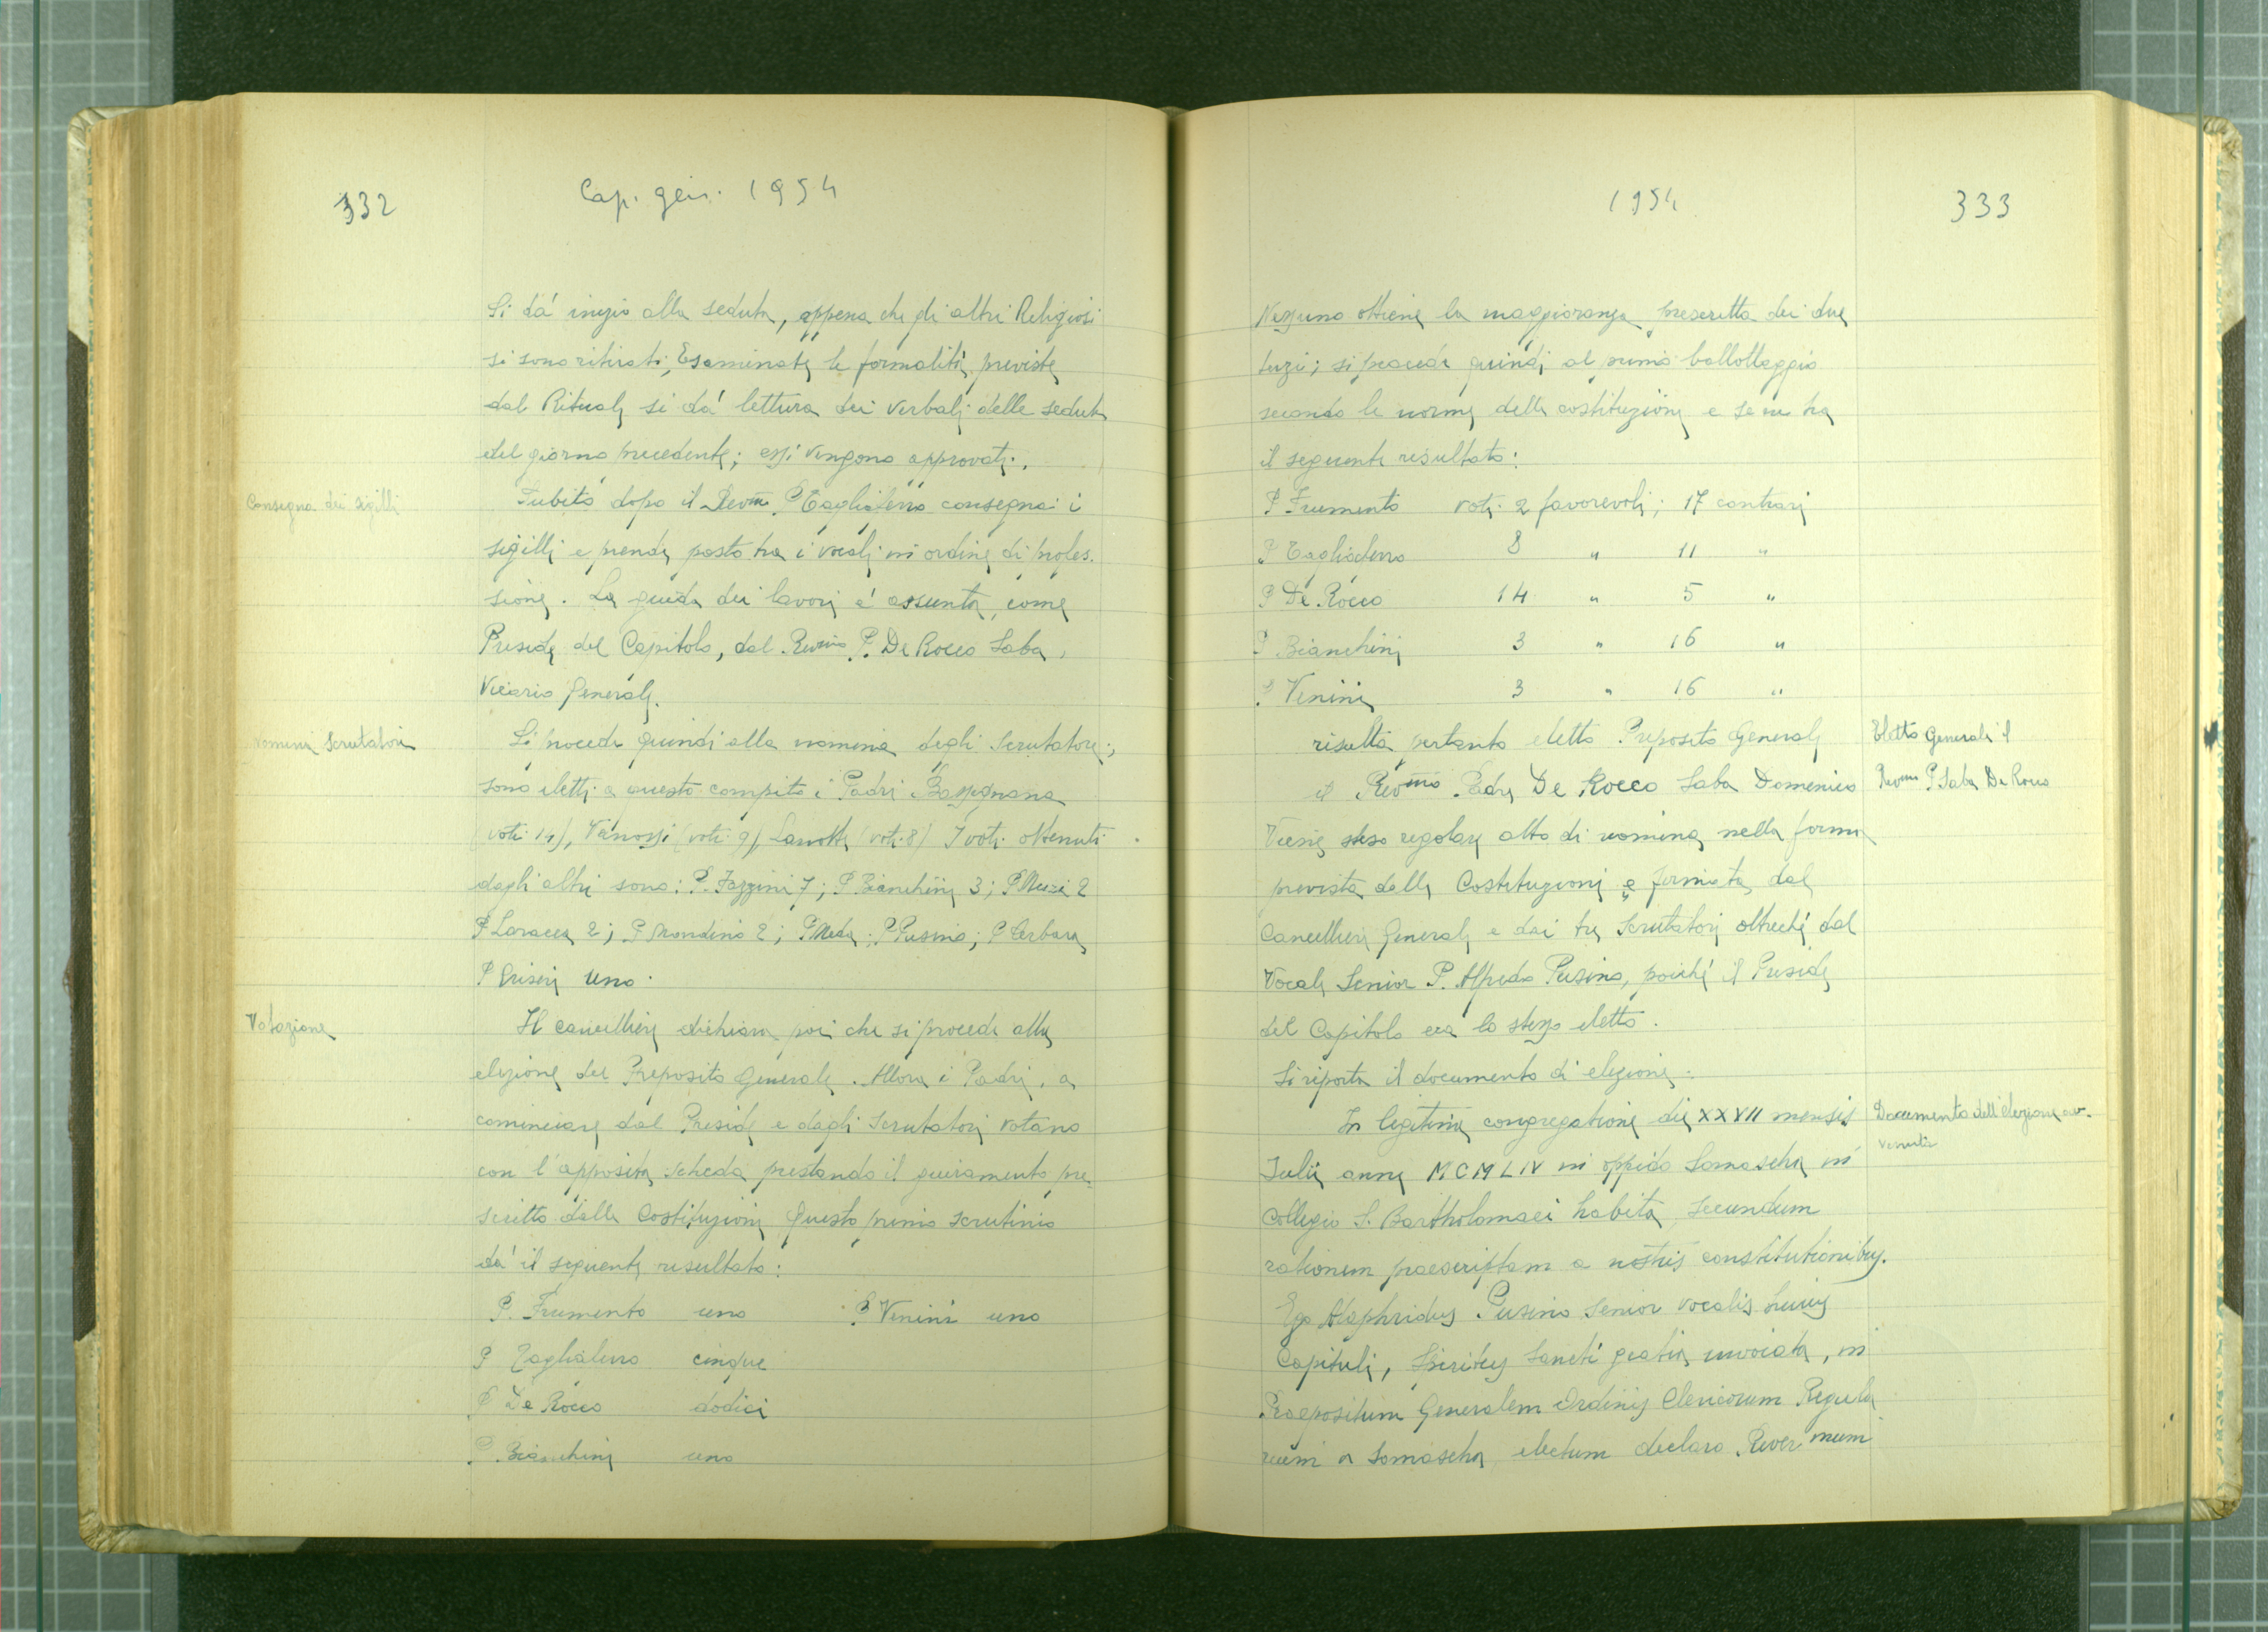 332
Cap. gen. 1954
Si dá inizio alla seduta, appena che gli altri Religiosi
si sono ritirati; Esaminate le formalità previste
dal Rituale si dá lettura dei verbali delle sedute
del giorno precedente; essi vengono approvati.
Consegna dei sigilli
Subito dopo il Revmo P Tagliaferro consegna i
sigilli e prende posto tra i vocali in ordine di profes-
sione. La guida dei lavori é assunta, come
Preside del Capitolo, dal Revmo P. De Rocco Saba,
Vicario Generale.
nomina Scrutatori
Si procede quindi alla nomina degli Scrutatori;
sono eletti a questo compito i Padri Bassignana
(voti 14), Vanossi (voti 9), (voti 8) I voti ottenuti
dagli altri sono: P. Fazzini 7; P Bianchini 3; P Muzi 2
P Laracca 2; P Mondino 2; P Meda; P Pusino; P Cerbara
P Griseri uno.
Votazione
Il cancelliere dichiara poi che si procede alla
elezione del Preposito Generale. Allora i Padri, a
cominciare dal Preside e dagli Scrutatori votano
con l'apposita scheda prestando il giuramento pre-
scritto dalle Costituzioni Questo primo scrutinio
dá il seguente risultato:
P. Frumento uno P Venini uno
P Tagliaferro cinque
P De Rocco dodici
P. Bianchini uno
1954
333
Nessuno ottiene la maggioranza prescritta dei due
terzi; si procede quindi al primo ballottaggio
secondo le norme delle costituzioni e se ne ha
il seguente risultato:
P Frumento voti 2 favorevoli; 17 contrari
P Tagliaferro 8 " 11 "
P De Rocco 14 " 5 "
P Bianchini 3 " 16 "
P Venini 3 " 16 "
risulta pertanto eletto Preposito Generale
Eletto Generale il
il Revmo Padre De Rocco Saba Domenico
Revmo P Saba De Rocco
Viene steso regolare atto di nomina nella forma
prevista dalle Costituzioni e firmata dal
Cancelliere Generale e dai tre Scrutatori oltreché dal
Vocale Senior P. Alfredo Pusino, poiché il Preside
del Capitolo era lo stesso eletto.
Si riporta il documento di elezione.
In legitima congregatione die XXVII mensis
Documento dell'elezione av-
venuta
Julii anni MCMLIV in oppido Somascha in
Collegio S. Bartholomaei habita, secundum
rationem praescriptam a nostris constitutionibus.
Ego Alaphridus Pusino Senior vocalis huius
Capituli, Spiritus Sancti gratia invocata, in
Praepositum Generalem Ordinis Clericorum Regula
rium a Somascha electum declaro Rever mum